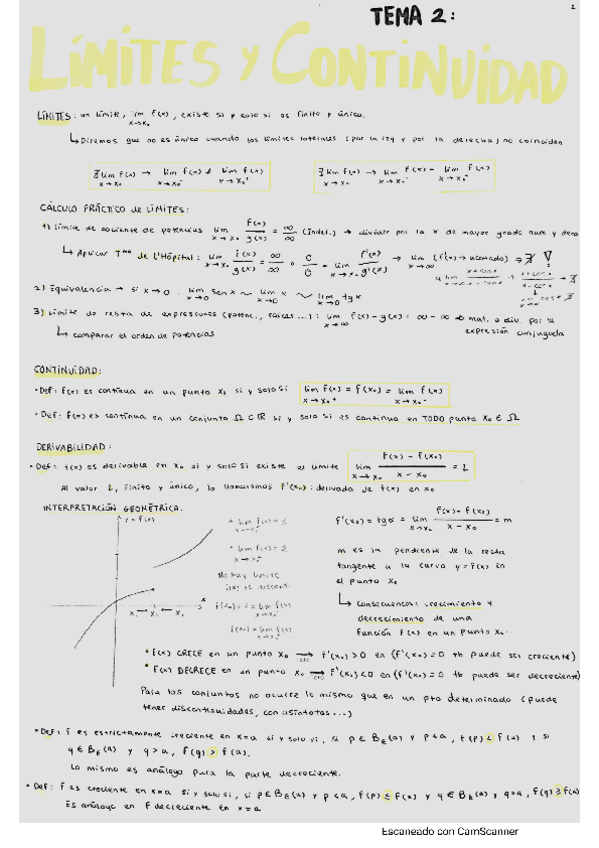 2
TEMA 2:
LÍMITES Y CONTINUIDAD
LÍMITES: un límite, lim f(x), existe si y solo si es finito y único.
x→x₀
↳ Diremos que no es único cuando los límites laterales (por la izq y por la derecha) no coinciden
∄ lim f(x) → lim f(x) ≠ lim f(x)
x→x₀ x→x₀⁻ x→x₀⁺
∃ lim f(x) → lim f(x) = lim f(x)
x→x₀ x→x₀⁺ x→x₀⁻
CÁLCULO PRÁCTICO de LÍMITES:
1) límite de cociente de potencias lim f(x)/g(x) = ∞/∞ (indet.) → dividir por la x de mayor grado num y deno
x→x₀
↳ Aplicar Tma de L'Hôpital: lim f(x)/g(x) = ∞/∞ o 0/0 = lim f'(x)/g'(x) → lim (f(x)→acotado) → ∄
2) Equivalencia → si x→0. lim sen x ~ lim x ~ lim tg x
x→0 x→0 x→0
3) Límite de resta de expresiones (potenc., raíces...): lim f(x) - g(x) = ∞ - ∞ → mult. o div. por la
x→∞ expresión conjugada
↳ comparar el orden de potencias
CONTINUIDAD:
• Def: f(x) es continua en un punto x₀ si y solo si lim f(x) = f(x₀) = lim f(x)
x→x₀⁺ x→x₀⁻
• Def: f(x) es continua en un conjunto Ω ⊂ ℝ si y solo si es continua en TODO punto x₀ ∈ Ω
DERIVABILIDAD:
• Def: f(x) es derivable en x₀ si y solo si existe el límite lim f(x) - f(x₀) / x - x₀ = L
x→x₀
Al valor L, finito y único, lo llamaremos f'(x₀): derivada de f(x) en x₀
INTERPRETACIÓN GEOMÉTRICA.
y = f(x)
• lim f(x) = 2
No hay límite
f'(x₀) = tg α = lim f(x) - f(x₀) / x - x₀ = m
x→x₀
m es la pendiente de la recta
tangente a la curva y = f(x) en
el punto x₀
↳ Consecuencia: crecimiento y
decrecimiento de una
función f(x) en un punto x₀.
• f(x) CRECE en un punto x₀ → f'(x₀) > 0 en (f'(x₀) = 0 tb puede ser creciente)
• f(x) DECRECE en un punto x₀ → f'(x₀) < 0 en (f'(x₀) = 0 tb puede ser decreciente)
Para los conjuntos no ocurre lo mismo que en un pto determinado (puede
tener discontinuidades, con asíntotas...)
• Def: f es estrictamente creciente en x=a si y solo si, si p ∈ Bε(a) y p<a, f(p) < f(a) y si
q ∈ Bε(a) y q>a, f(q) > f(a).
Lo mismo es análogo para la parte decreciente.
• Def: f es creciente en x=a si y solo si, si p ∈ Bε(a) y p<a, f(p) ≤ f(a) y q ∈ Bε(a) y q>a, f(q) ≥ f(a)
Es análogo en f decreciente en x=a
Escaneado con CamScanner